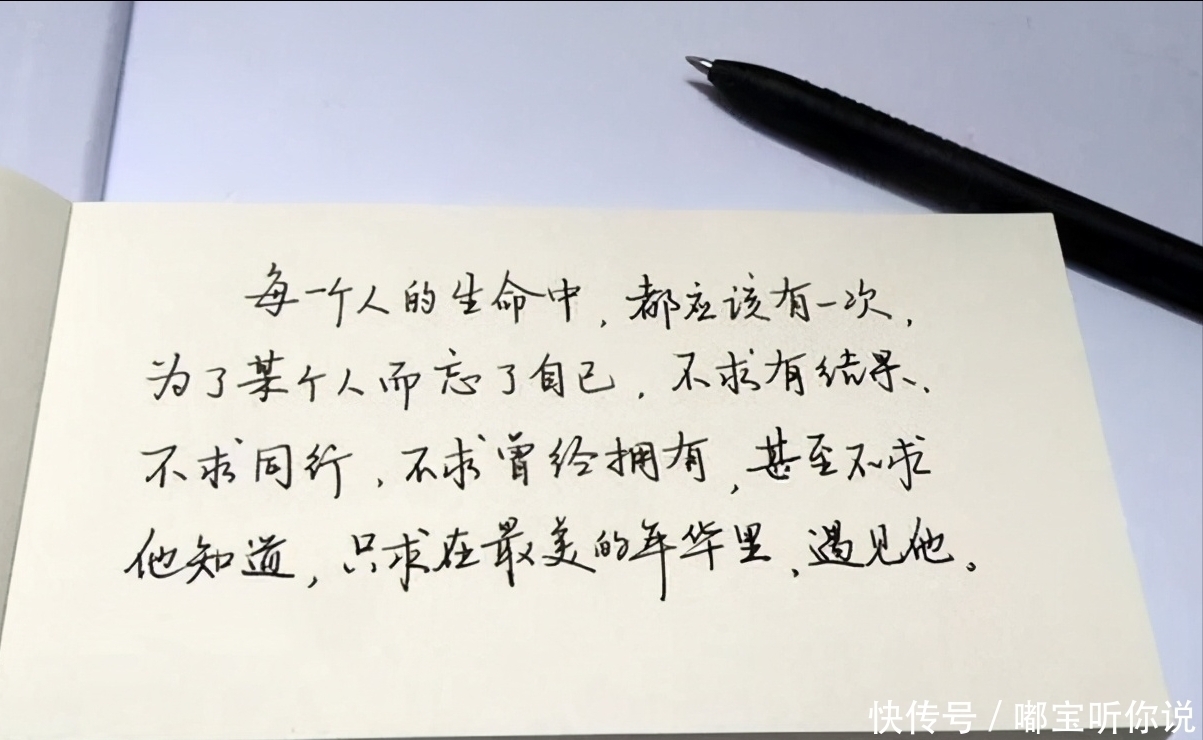 每一个人的生命中，都应该有一次，
为了某个人而忘了自己，不求有结果、
不求同行，不求曾经拥有，甚至不求
他知道，只求在最美的年华里、遇见他。
快传号/嘟宝听你说